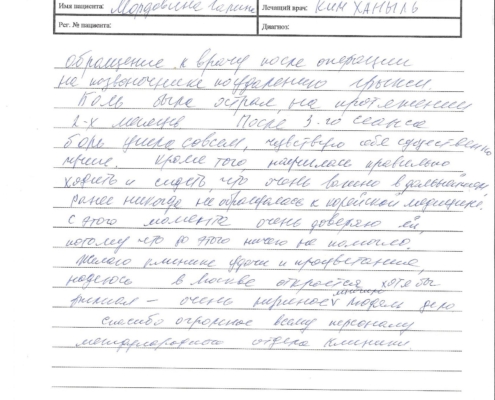 Имя пациента: Мордовина Галина Лечащий врач: КИМ ХАНЫЛЬ
Рег. № пациента: Диагноз:
обращение к врачу после операции
на позвоночнике по удалению грыжи.
Боль была острая, на протяжении
2-х месяцев. После 3-го сеанса
боль ушла совсем, чувствую себя существенно
лучше. Кроме того, научилась правильно
ходить и сидеть, что очень важно в дальнейшем,
ранее никогда не обращалась к корейской медицине.
С этого момента очень доверяю ей,
потому что до этого ничего не помогло.
Желаю клинике удачи и процветания,
надеюсь в Москве откроется хотя бы
филиал – очень нужное многим людям дело
Спасибо огромное всему персоналу
международного отдела клиники.